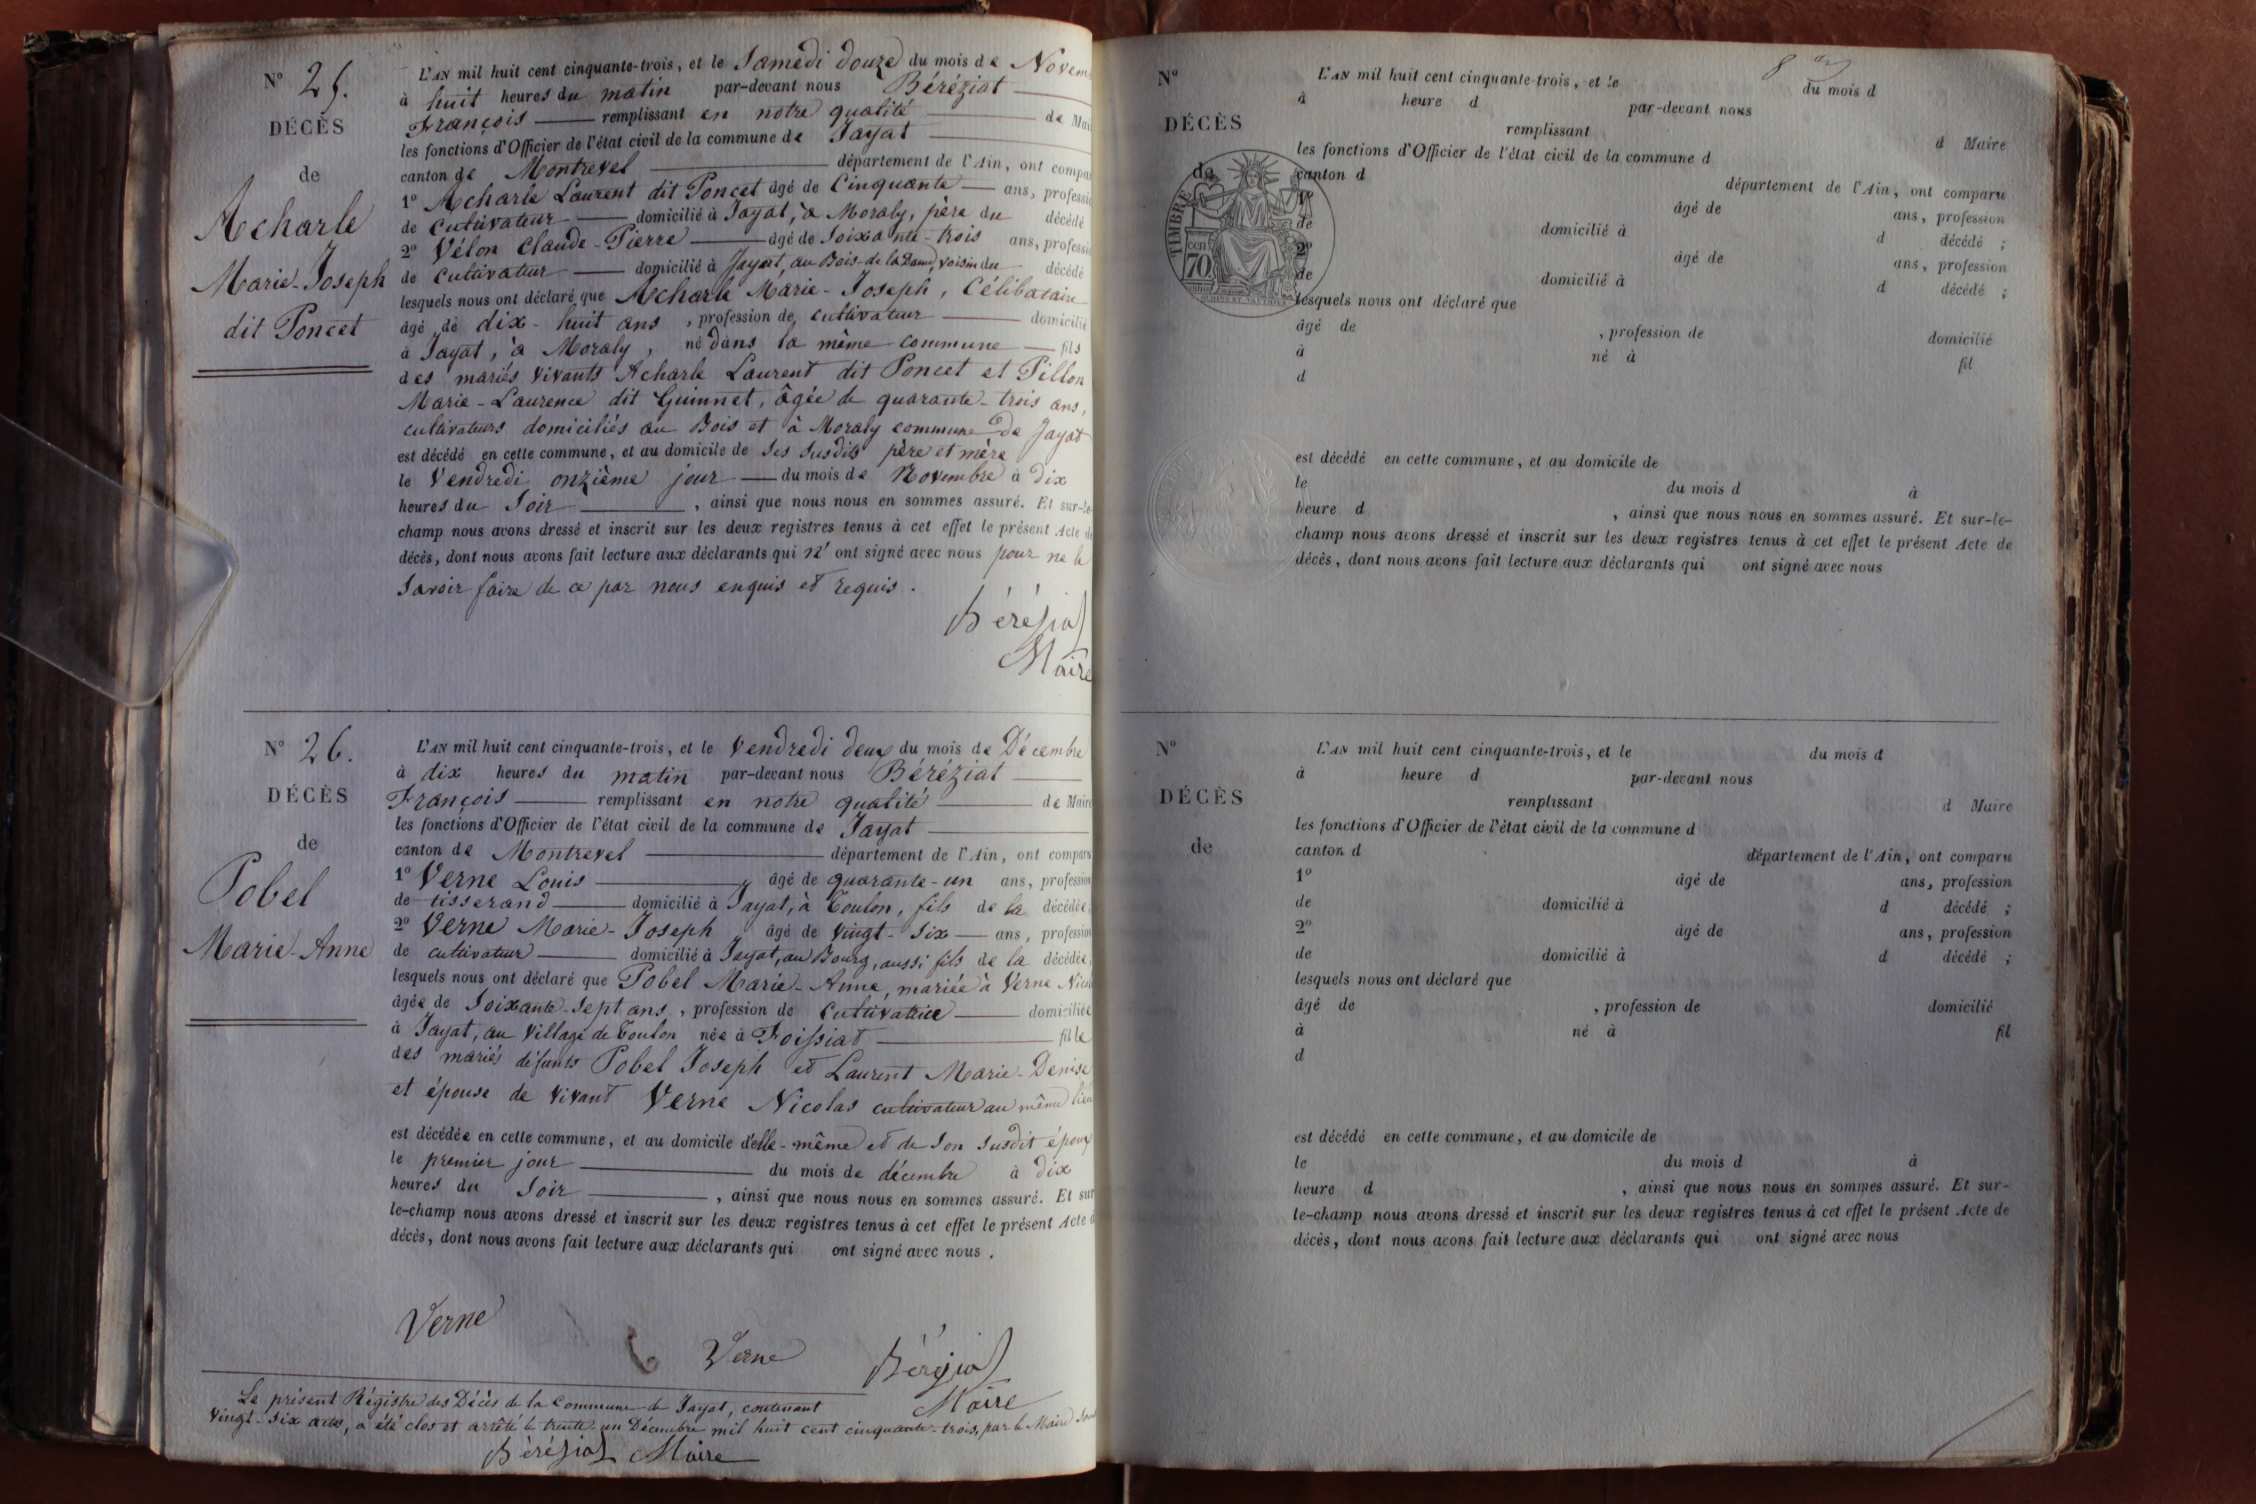 N° 25.
DÉCÈS
de
Acharle
Marie-Joseph
dit Poncet
L'AN mil huit cent cinquante-trois, et le Samedi douze du mois de Novem
à huit heures du matin par-devant nous Béréziat
François remplissant en notre qualité de Mai
les fonctions d'Officier de l'état civil de la commune de Jayat
canton de Montrevel département de l'Ain, ont compa
1° Acharle Laurent dit Poncet âgé de Cinquante ans, professi
de cultivateur domicilié à Jayat, à Moraly, père du décédé
2° Vélon Claude-Pierre âgé de Soixante-trois ans, professi
de cultivateur domicilié à Jayat, au Bois de la Dame, voisin du décédé
lesquels nous ont déclaré que Acharle Marie-Joseph, Célibataire
âgé de dix-huit ans, profession de cultivateur domicilié
à Jayat, à Moraly, né dans la même commune fils
des mariés vivants Acharle Laurent dit Poncet et Pillon
Marie-Laurence dit Guinnet, âgée de quarante-trois ans,
cultivateurs domiciliés au Bois et à Moraly commune de Jayat
est décédé en cette commune, et au domicile de ses susdits père et mère
le Vendredi onzième jour du mois de Novembre à dix
heures du Soir, ainsi que nous nous en sommes assuré. Et sur-le-
champ nous avons dressé et inscrit sur les deux registres tenus à cet effet le présent Acte de
décès, dont nous avons fait lecture aux déclarants qui n'ont signé avec nous pour ne le
Savoir faire de ce par nous enquis et requis.
Béréziat
Maire
N° 26.
DÉCÈS
de
Pobel
Marie-Anne
L'AN mil huit cent cinquante-trois, et le Vendredi deux du mois de Décembre
à dix heures du matin par-devant nous Béréziat
François remplissant en notre qualité de Maire
les fonctions d'Officier de l'état civil de la commune de Jayat
canton de Montrevel département de l'Ain, ont comparu
1° Verne Louis âgé de quarante-un ans, profession
de tisserand domicilié à Jayat, à Toulon, fils de la décédée,
2° Verne Marie-Joseph âgé de vingt-six ans, profession
de cultivateur domicilié à Jayat, au Bourg, aussi fils de la décédée,
lesquels nous ont déclaré que Pobel Marie-Anne, mariée à Verne Nicol
âgée de Soixante-Sept ans, profession de Cultivatrice domiciliée
à Jayat, au Village de Toulon née à Foissiat fille
des mariés défunts Pobel Joseph et Laurent Marie-Denise
et épouse de vivant Verne Nicolas cultivateur au même lieu
est décédée en cette commune, et au domicile d'elle-même et de Son Susdit époux
le premier jour du mois de décembre à dix
heures du Soir, ainsi que nous nous en sommes assuré. Et sur
le-champ nous avons dressé et inscrit sur les deux registres tenus à cet effet le présent Acte d
décès, dont nous avons fait lecture aux déclarants qui ont signé avec nous.
Verne
Verne
Béréziat
Maire
Le présent Régistre des Décès de la Commune de Jayat, contenant
Vingt-Six actes, a été clos et arrêté le trente-un Décembre mil huit cent cinquante-trois, par le Maire
Béréziat Maire
N°
DÉCÈS
de
TIMBRE
70 cen
8
L'AN mil huit cent cinquante-trois, et le du mois d
à heure d par-devant nous
remplissant d Maire
les fonctions d'Officier de l'état civil de la commune d
canton d département de l'Ain, ont comparu
1° âgé de ans, profession
de domicilié à d décédé ;
2° âgé de ans, profession
de domicilié à d décédé ;
lesquels nous ont déclaré que
âgé de , profession de domicilié
à né à fil
d
est décédé en cette commune, et au domicile de
le du mois d à
heure d , ainsi que nous nous en sommes assuré. Et sur-le-
champ nous avons dressé et inscrit sur les deux registres tenus à cet effet le présent Acte de
décès, dont nous avons fait lecture aux déclarants qui ont signé avec nous
N°
DÉCÈS
de
L'AN mil huit cent cinquante-trois, et le du mois d
à heure d par-devant nous
remplissant d Maire
les fonctions d'Officier de l'état civil de la commune d
canton d département de l'Ain, ont comparu
1° âgé de ans, profession
de domicilié à d décédé ;
2° âgé de ans, profession
de domicilié à d décédé ;
lesquels nous ont déclaré que
âgé de , profession de domicilié
à né à fil
d
est décédé en cette commune, et au domicile de
le du mois d à
heure d , ainsi que nous nous en sommes assuré. Et sur-
le-champ nous avons dressé et inscrit sur les deux registres tenus à cet effet le présent Acte de
décès, dont nous avons fait lecture aux déclarants qui ont signé avec nous